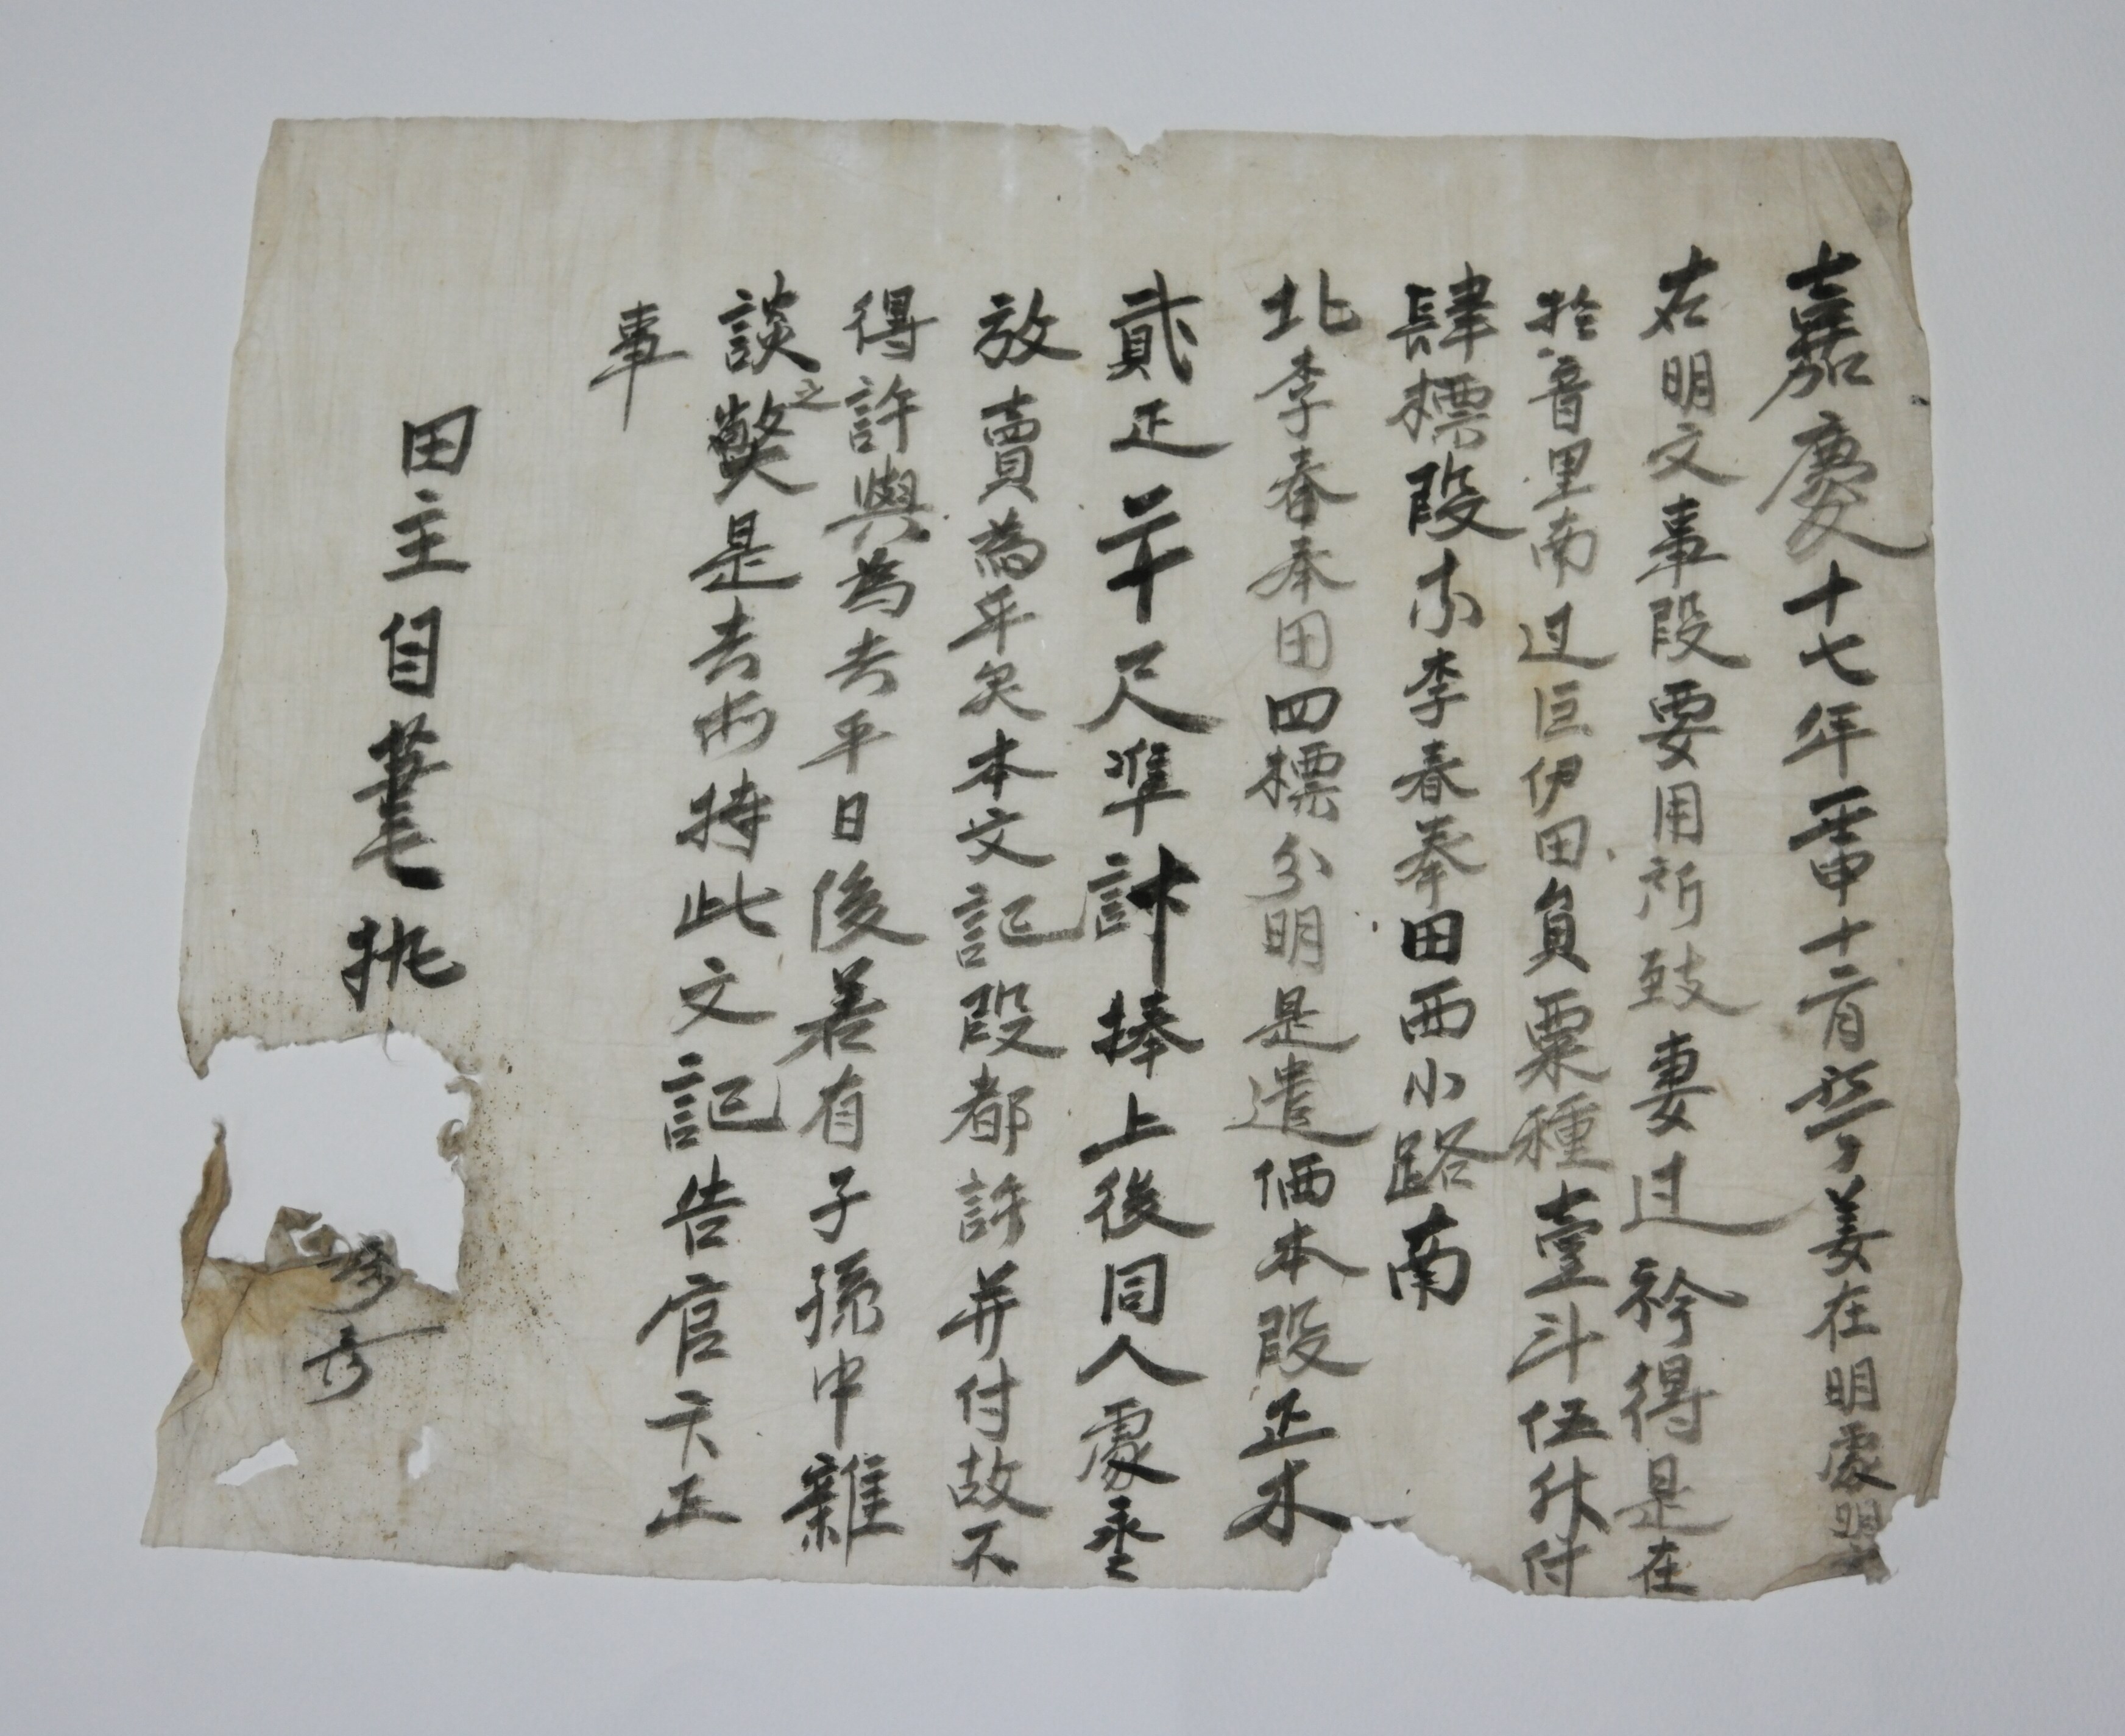 嘉慶十七年壬申十二月 姜在明處明文
右明文事段要用所致妻边衿得是在
於音里南边巨伊田員粟種壹斗伍升付
肆標段東李春奉田西小路南
北李春奉田四標分明是遣価本段正木
貳疋卄尺準計捧上後同人處永
放賣為乎矣本文記段都許并付故不
得許與為去乎日後若有子孫中雜
談之弊是去等持此文記告官卞正
事
田主自筆執